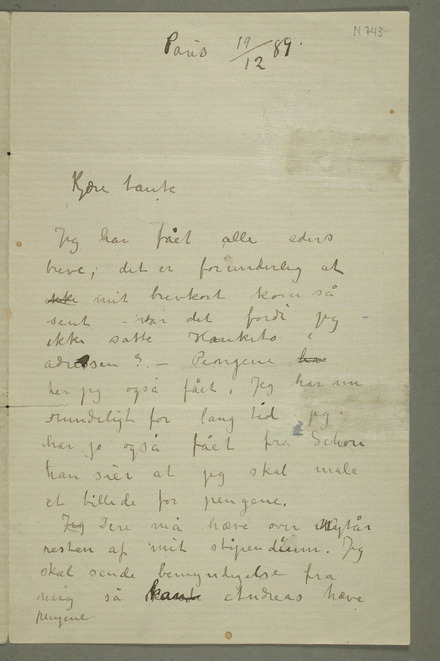 N 743
Paris 19/12 89.
Kjære tante
Jeg har fået alle eders
breve, det er forunderlig at
mit brevkort kom så
sent – var det fordi jeg –
ikke satte Hankets i
adressen ? – Pengene
her jeg også fået. Jeg har nu
rundeligt for lang tid jeg
har jo også fået fra Schou
han siér at jeg skal male
et billede for pengene.
Jeg Dere må hæve over Nytår
resten af mit stipendium. Jeg
skal sende bemyndigelse fra
mig så Andreas hæve
pengene